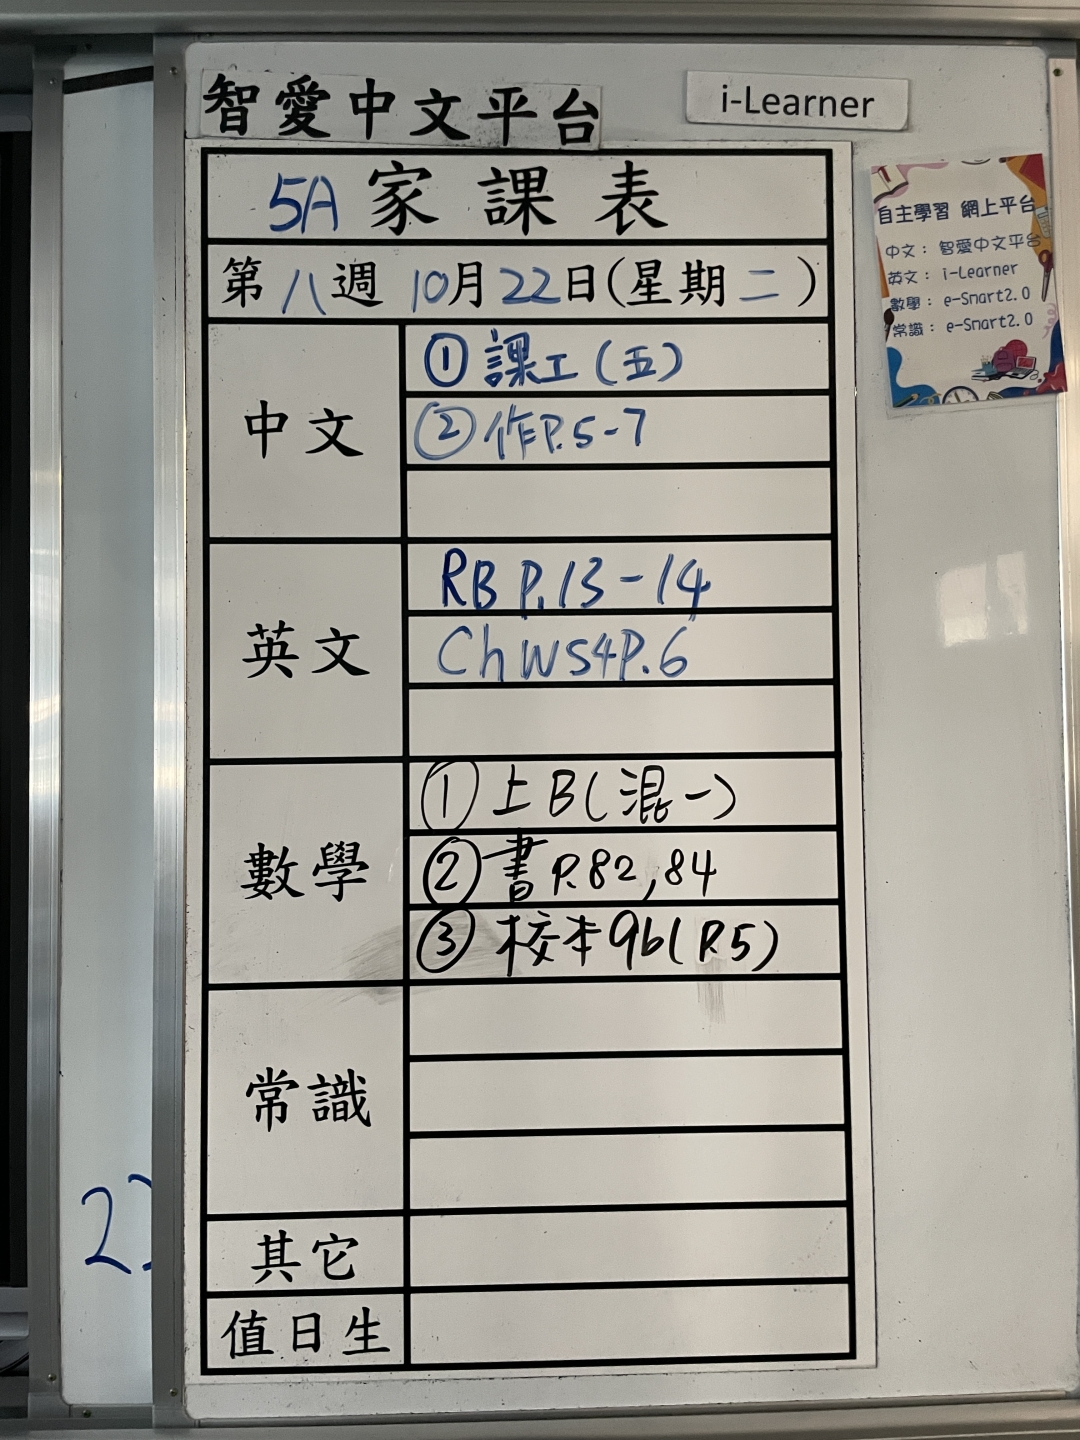 智愛中文平台
i-Learner
5A 家課表
第八週 10月22日(星期二)
中文
① 課工(五)
② 作P.5-7
英文
RB P.13-14
Ch WS4 P.6
數學
① 上B(混一)
② 書P.82,84
③ 校本9b(P.5)
常識
其它
值日生
自主學習 網上平台
中文: 智愛中文平台
英文: i-Learner
數學: e-Smart2.0
常識: e-Smart2.0